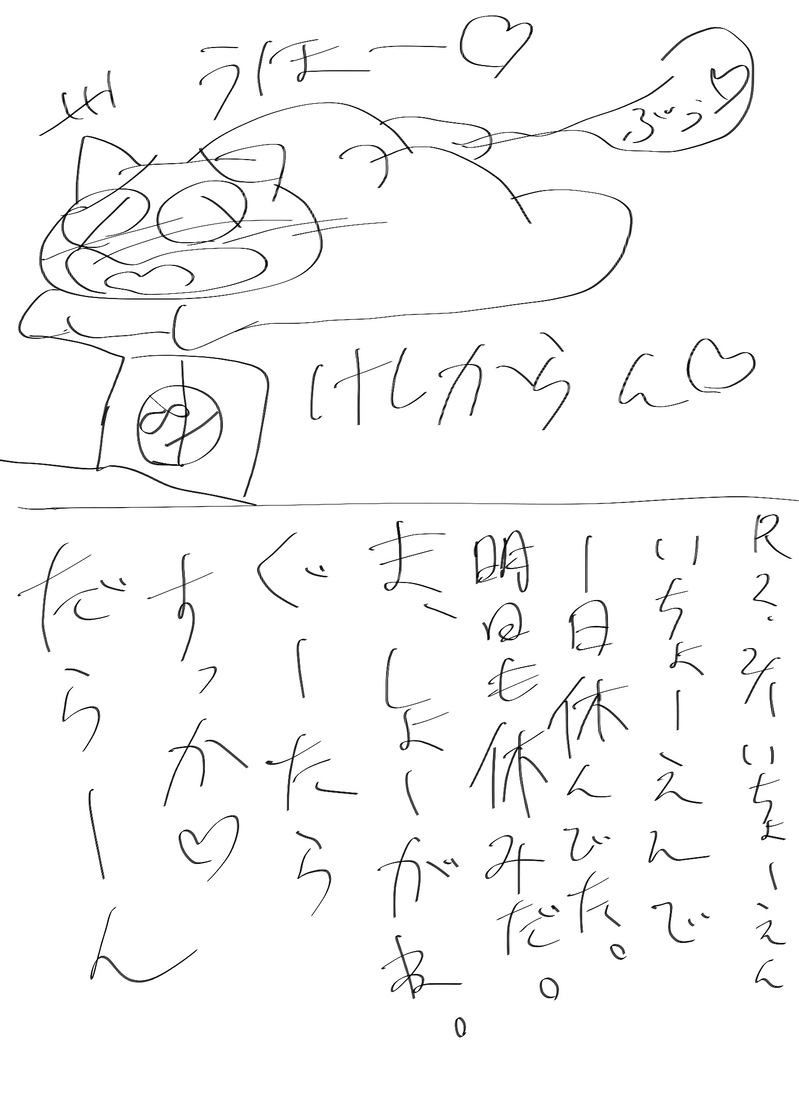 うほー♡
ぶっ♡
けしからん♡
R2.2/1 いちょーえん
いちょーえんで
1日休んでた。
明日も休みだ。
ま、しょーがね。
ぐーたら
すっか♡
だらーん